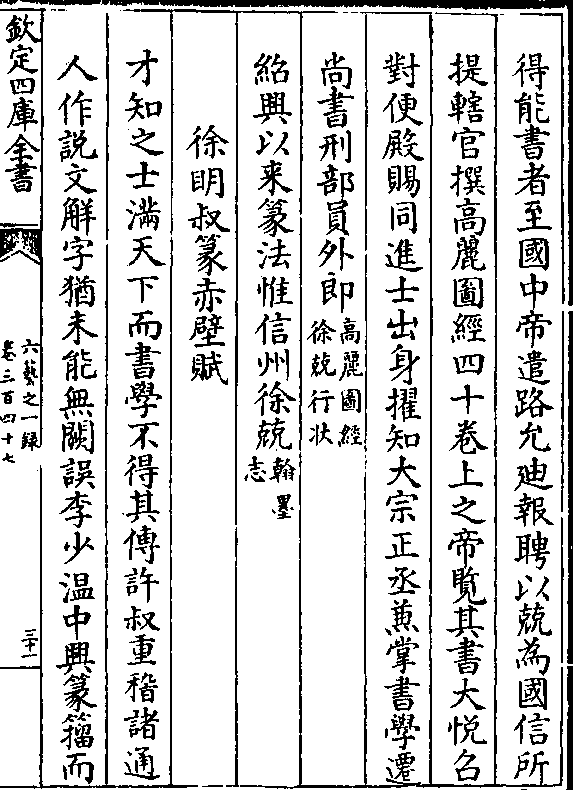 得能書者至國中帝遣路允廸報聘以兢為國信所
提轄官撰高麗圖經四十卷上之帝覧其書大悅召
對便殿賜同進士出身擢知大宗正丞兼掌書學遷
尚書刑部員外郎高麗圖經
徐兢行状
紹興以来篆法惟信州徐兢翰墨
志
徐明叔篆赤壁賦
才知之士滿天下而書學不得其傳許叔重稽諸通
人作説文解字猶未能無闕誤李少温中興篆籀而
欽定四庫全書
六藝之一録
卷三百四十七
三十一